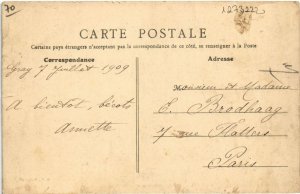 70
1273222
CARTE POSTALE
Certains pays étrangers n'acceptant pas la correspondance de ce côté, se renseigner à la Poste
Correspondance
Adresse
Gray 7 Juillet 1909
A bientôt, bécots
Annette
Monsieur et Madame
E. Brodhaag
7 rue
Paris